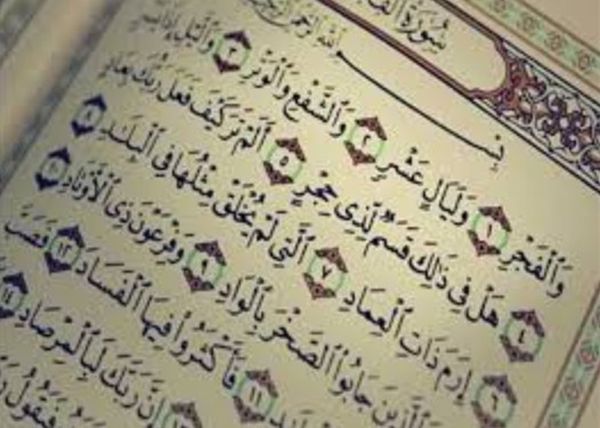 سُورَةُ
بِسْمِ ٱللَّهِ ٱلرَّحْمَٰنِ ٱلرَّحِيمِ
وَٱلْفَجْرِ ١ وَلَيَالٍ عَشْرٍ ٢ وَٱلشَّفْعِ وَٱلْوَتْرِ ٣ وَٱلَّيْلِ إِذَا
٤ هَلْ فِى ذَٰلِكَ قَسَمٌ لِّذِى حِجْرٍ ٥ أَلَمْ تَرَ كَيْفَ فَعَلَ رَبُّكَ بِعَادٍ
٦ إِرَمَ ذَاتِ ٱلْعِمَادِ ٧ ٱلَّتِى لَمْ يُخْلَقْ مِثْلُهَا فِى ٱلْبِلَٰدِ ٨
ٱلَّذِينَ جَابُوا۟ ٱلصَّخْرَ بِٱلْوَادِ ٩ وَفِرْعَوْنَ ذِى ٱلْأَوْتَادِ ١٠
١١ فَأَكْثَرُوا۟ فِيهَا ٱلْفَسَادَ ١٢ فَصَبَّ
١٣ إِنَّ رَبَّكَ لَبِٱلْمِرْصَادِ ١٤
فَيَقُولُ